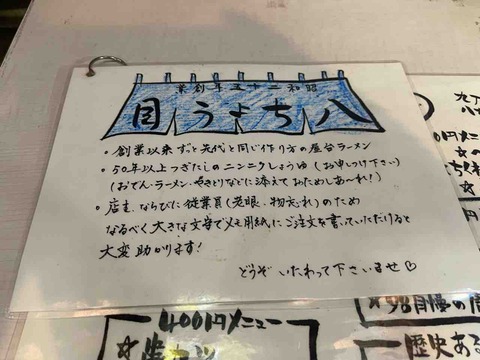 昭和二十五年創業
八ちょう目
・創業以来ずっと先代と同じ作り方の屋台ラーメン
・50年以上つぎたしのニンニクしょうゆ(お申しつけ下さい)
(おでん・ラーメン・やきとりなどに添えておためしあ〜れ!)
・店主、ならびに従業員(老眼、物忘れ)のため
なるべく大きな文字でメモ用紙にご注文を書いていただけると
大変助かります!
どうぞ いたわって下さいませ♡
400円メニュー
自慢の
歴史ある